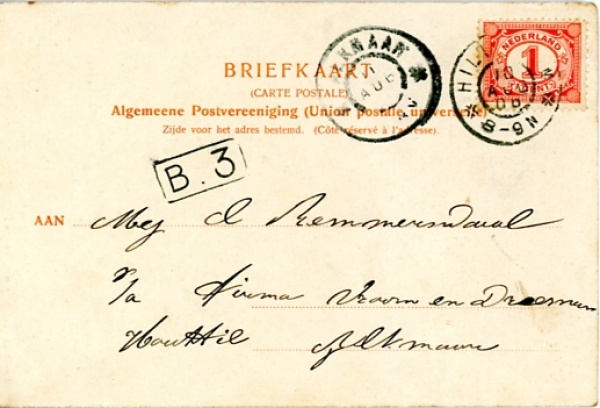 BRIEFKAART
(CARTE POSTALE)
Algemeene Postvereeniging (Union postale universelle)
Zijde voor het adres bestemd. (Côté réservé à l'adresse).
NEDERLAND
1
CENT
8-9N
B.3
AAN Mej
Firma Vroom en Dreesman
Houttil Alkmaar